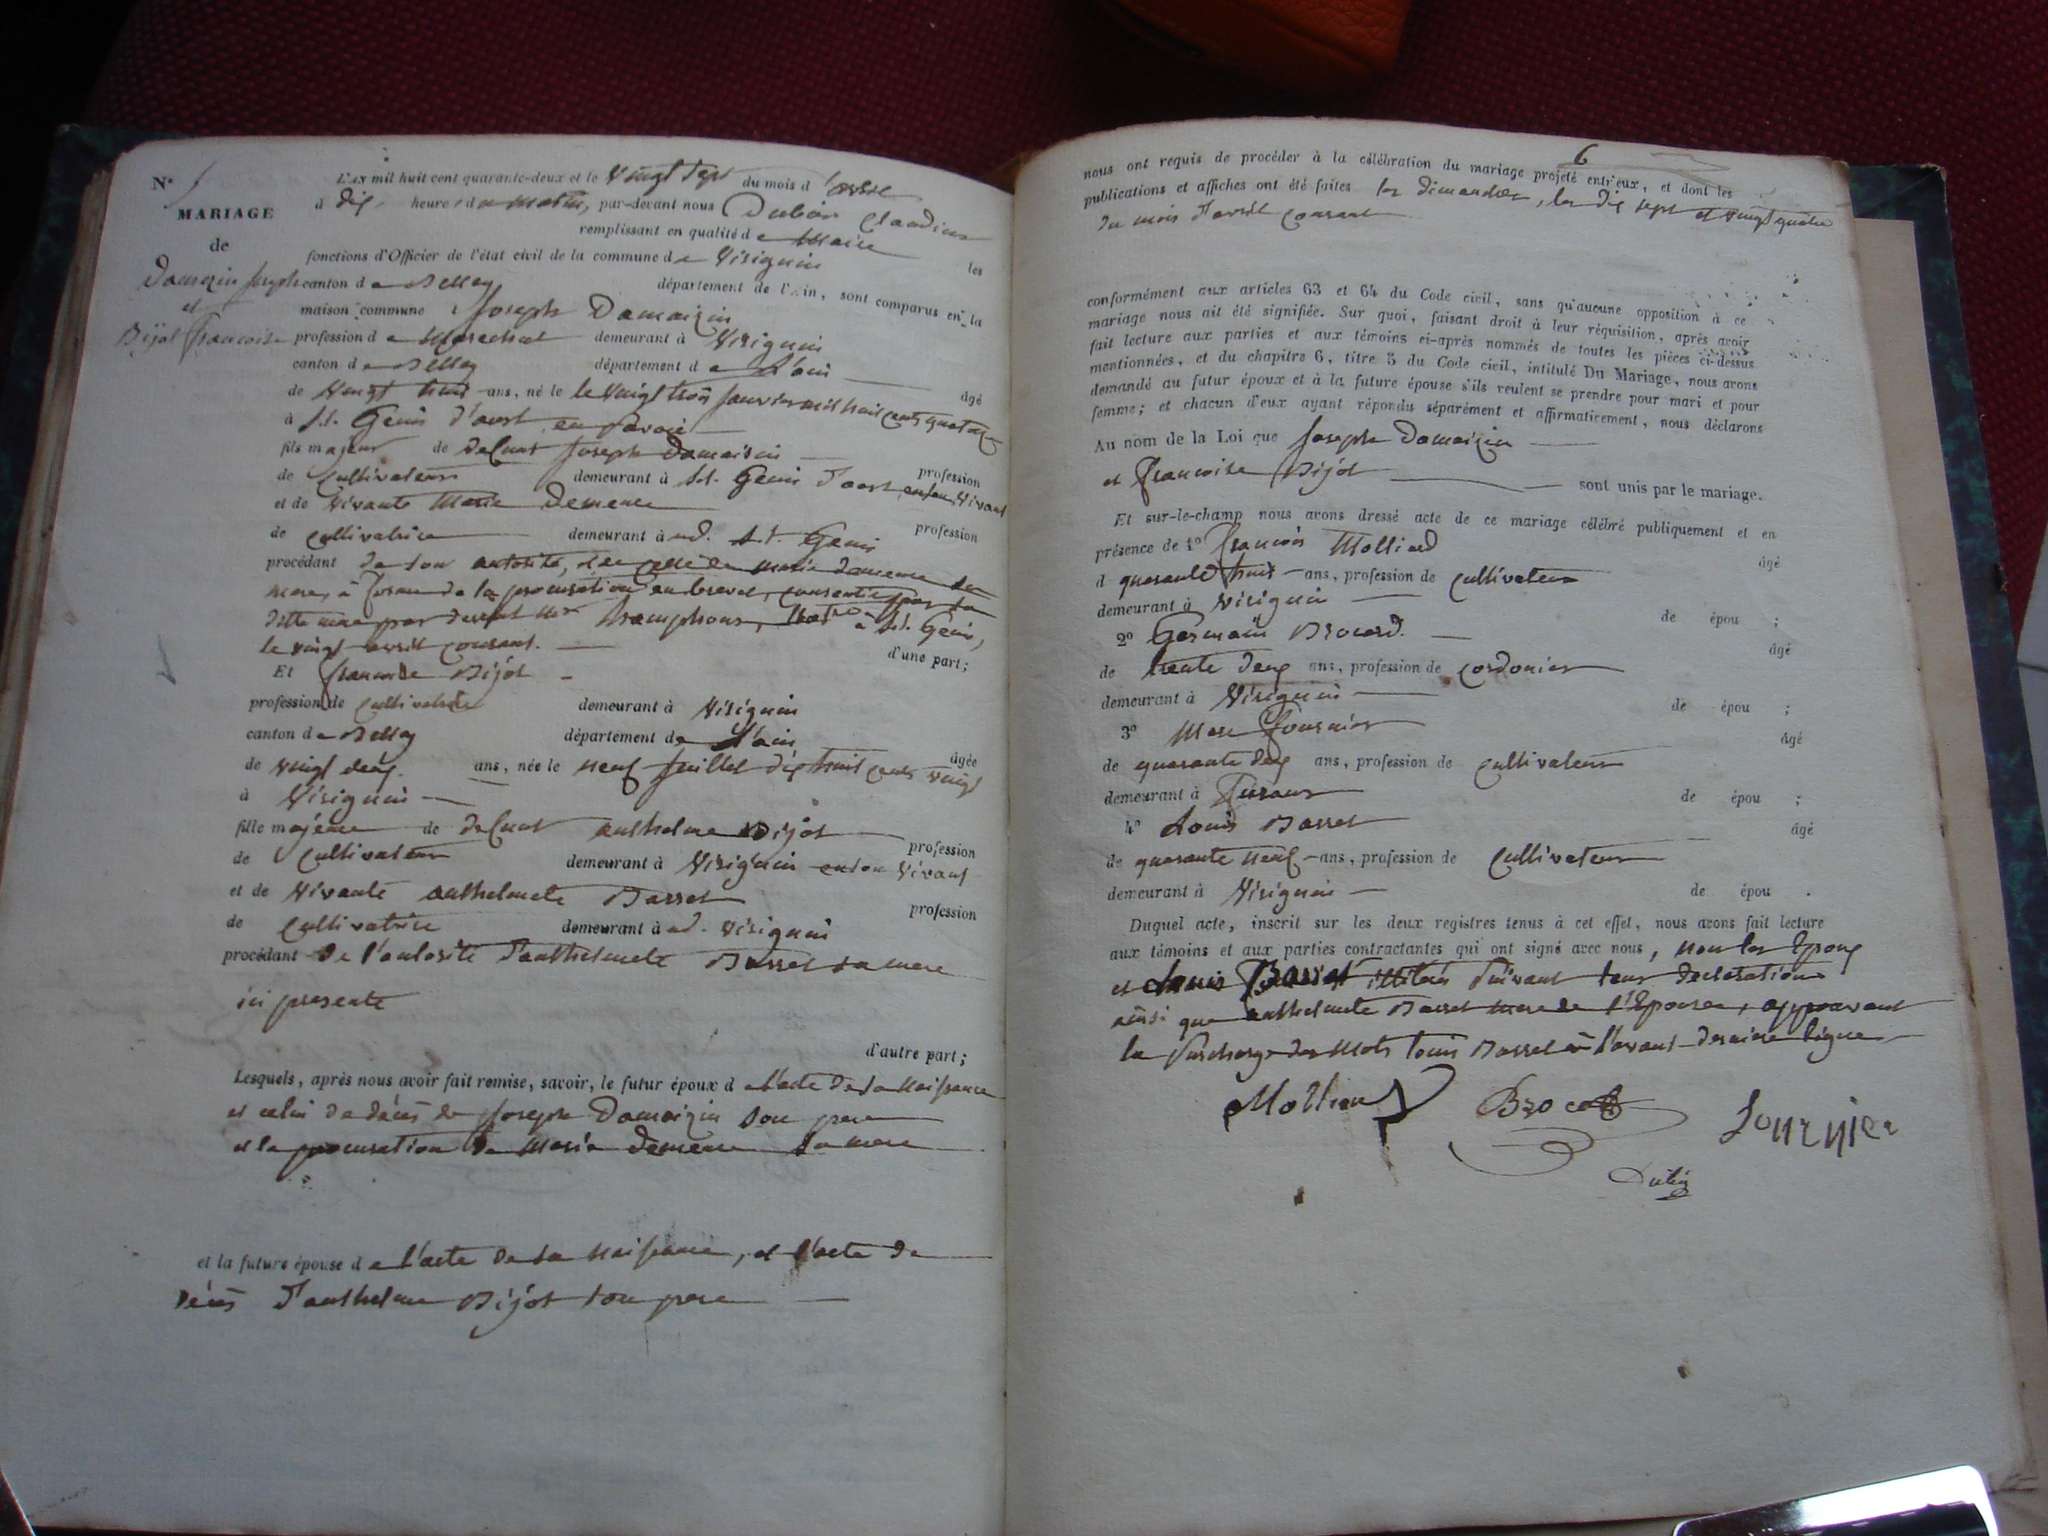 N°
MARIAGE
de
Damaizin Joseph
et
Bijot francoise
L'AN mil huit cent quarante-deux et le vingt sept du mois d'avril
à dix heure, du matin, par-devant nous Dubin Claudius
remplissant en qualité de Maire les
fonctions d'Officier de l'état civil de la commune de Virignin
canton de Belley département de l'Ain, sont comparus en la
maison commune Joseph Damaizin
profession de Marechal demeurant à Virignin
canton de Belley département de L'ain âgé
de vingt huit ans, né le le vingt trois janvier mil huit cents quatorze
à St. Genis d'aost en savoie
fils majeur de defunt Joseph Damaisin profession
de Cultivateur demeurant à St. Genis d'aost en son vivant
et de vivante Marie Demeure profession
de cultivatrice demeurant à ud. St. Genis
procédant de son autorité, et de celle de Marie demeure sa
mere, à forme de la procuration en brevet, consentie par sa
ditte mere par devant Me not.re à St. Genis,
le vingt avril courant. d'une part;
Et francoise Bijot
profession de cultivatrice demeurant à Virignin
canton de Belley département de L'ain âgée
de vingt deux ans, née le neuf juillet dix huit cents vingt
à Virignin
fille majeure de defunt anthelme Bijot profession
de Cultivateur demeurant à Virignin en son vivant
et de vivante anthelmete Barret profession
de Cultivatrice demeurant à ud. Virignin
procédant de l'autorité d'anthelmete Barret sa mere
ici presente
d'autre part;
Lesquels, après nous avoir fait remise, savoir, le futur époux de l'acte de sa Naissance
et celui de décès de Joseph Damaizin son pere
et la procuration de Marie demeure sa mere
et la future épouse de l'acte de sa Naissance, et l'acte de
décès d'anthelme Bijot son pere
6
nous ont requis de procéder à la célébration du mariage projeté entr'eux, et dont les
publications et affiches ont été faites les dimanches, les dix sept et vingt quatre
du mois d'avril courant
conformément aux articles 63 et 64 du Code civil, sans qu'aucune opposition à ce
mariage nous ait été signifiée. Sur quoi, faisant droit à leur réquisition, après avoir
fait lecture aux parties et aux témoins ci-après nommés de toutes les pièces ci-dessus
mentionnées, et du chapitre 6, titre 5 du Code civil, intitulé Du Mariage, nous avons
demandé au futur époux et à la future épouse s'ils veulent se prendre pour mari et pour
femme; et chacun d'eux ayant répondu séparément et affirmativement, nous déclarons
Au nom de la Loi que Joseph Damaizin
et francoise Bijot sont unis par le mariage.
Et sur-le-champ nous avons dressé acte de ce mariage célébré publiquement et en
présence de 1° francois Molliard âgé
d quarante huit ans, profession de cultivateur
demeurant à Virignin de épou ;
2° Germain Brocard. âgé
de trente deux ans, profession de cordonier
demeurant à Virignin de épou ;
3° Marc fournier âgé
de quarante deux ans, profession de cultivateur
demeurant à de épou ;
4° Louis Barret âgé
de quarante neuf ans, profession de cultivateur
demeurant à Virignin de épou .
Duquel acte, inscrit sur les deux registres tenus à cet effet, nous avons fait lecture
aux témoins et aux parties contractantes qui ont signé avec nous, non les Epoux
et Louis Barret illiterés suivant leur declaration
ainsi que anthelmete Barret mere de l'Epouse, approuvant
la surcharge des mots Louis Barret à l'avant derniere ligne
Fournier
Dubin